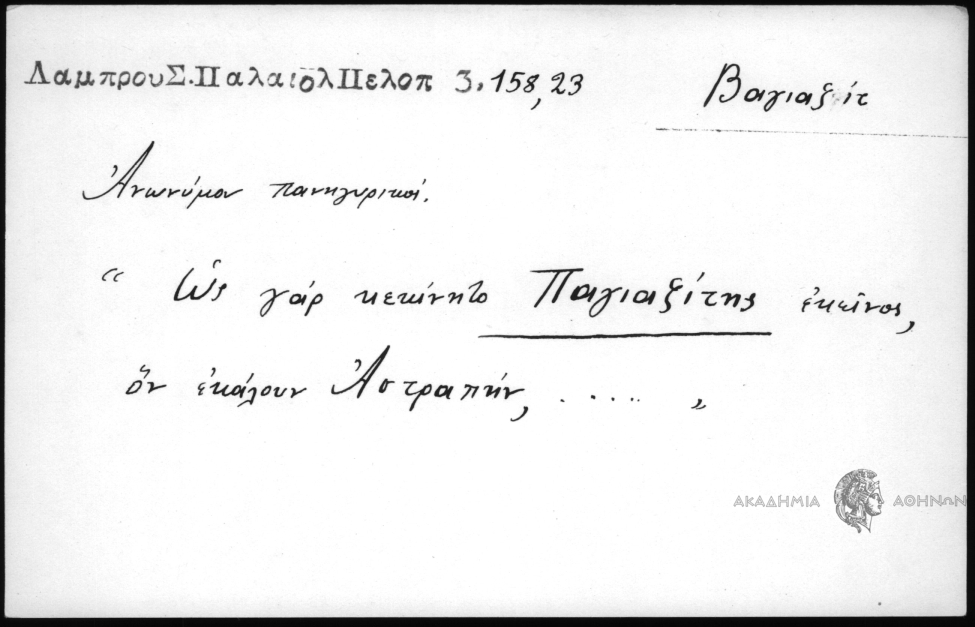 ΛαμπρουΣ.ΠαλαιολΠελοπ 3.158,23
Βαγιαζίτ
Ἀνωνύμου πανηγυρικοί.
“ Ὡς γάρ κεκίνητο Παγιαζίτης ἐκεῖνος,
ὅν ἐκάλουν Ἀστραπήν, ..... „
ΑΚΑΔΗΜΙΑ ΑΘΗΝΩΝ